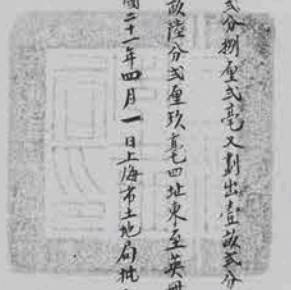 弍分捌厘弍毫又劃出壹畝弍分
畝陸分弍厘玖毫四址東至英冊
國二十一年四月一日上海市土地局批